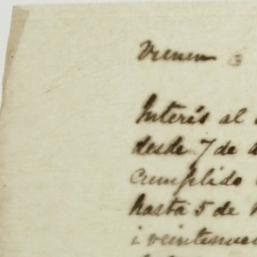 Vienen
Interés al
desde 7 de
cumplido
hasta 5 de
i veintenueve